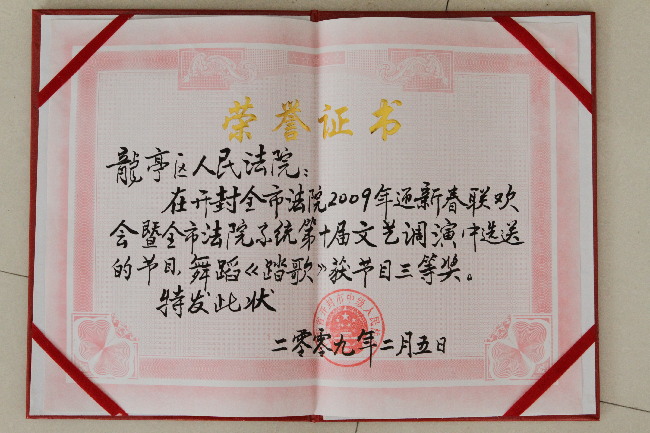 荣誉证书
龍亭区人民法院：
在开封全市法院2009年迎新春联欢
会暨全市法院系统第十届文艺调演中选送
的节目，舞蹈《踏歌》获节目三等奖。
特发此状
二零零九年二月五日